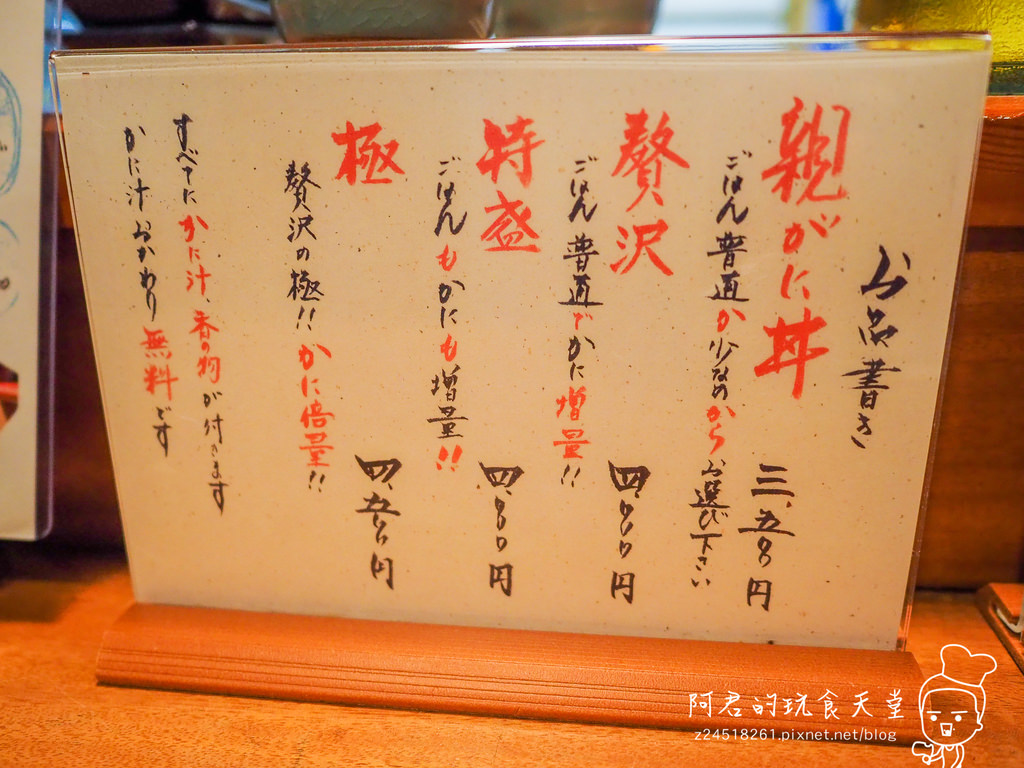 お品書き
親がに丼 三、五〇〇円
ごはん普通か少なめからお選び下さい
贅沢 四、〇〇〇円
ごはん普通でかに増量!!
特盛 円
ごはんもかにも増量!!
極 四、五〇〇円
贅沢の極!!かに倍量!!
すべてにかに汁、香の物が付きます
かに汁おかわり無料です
阿君的玩食天堂
z24518261.pixnet.net/blog